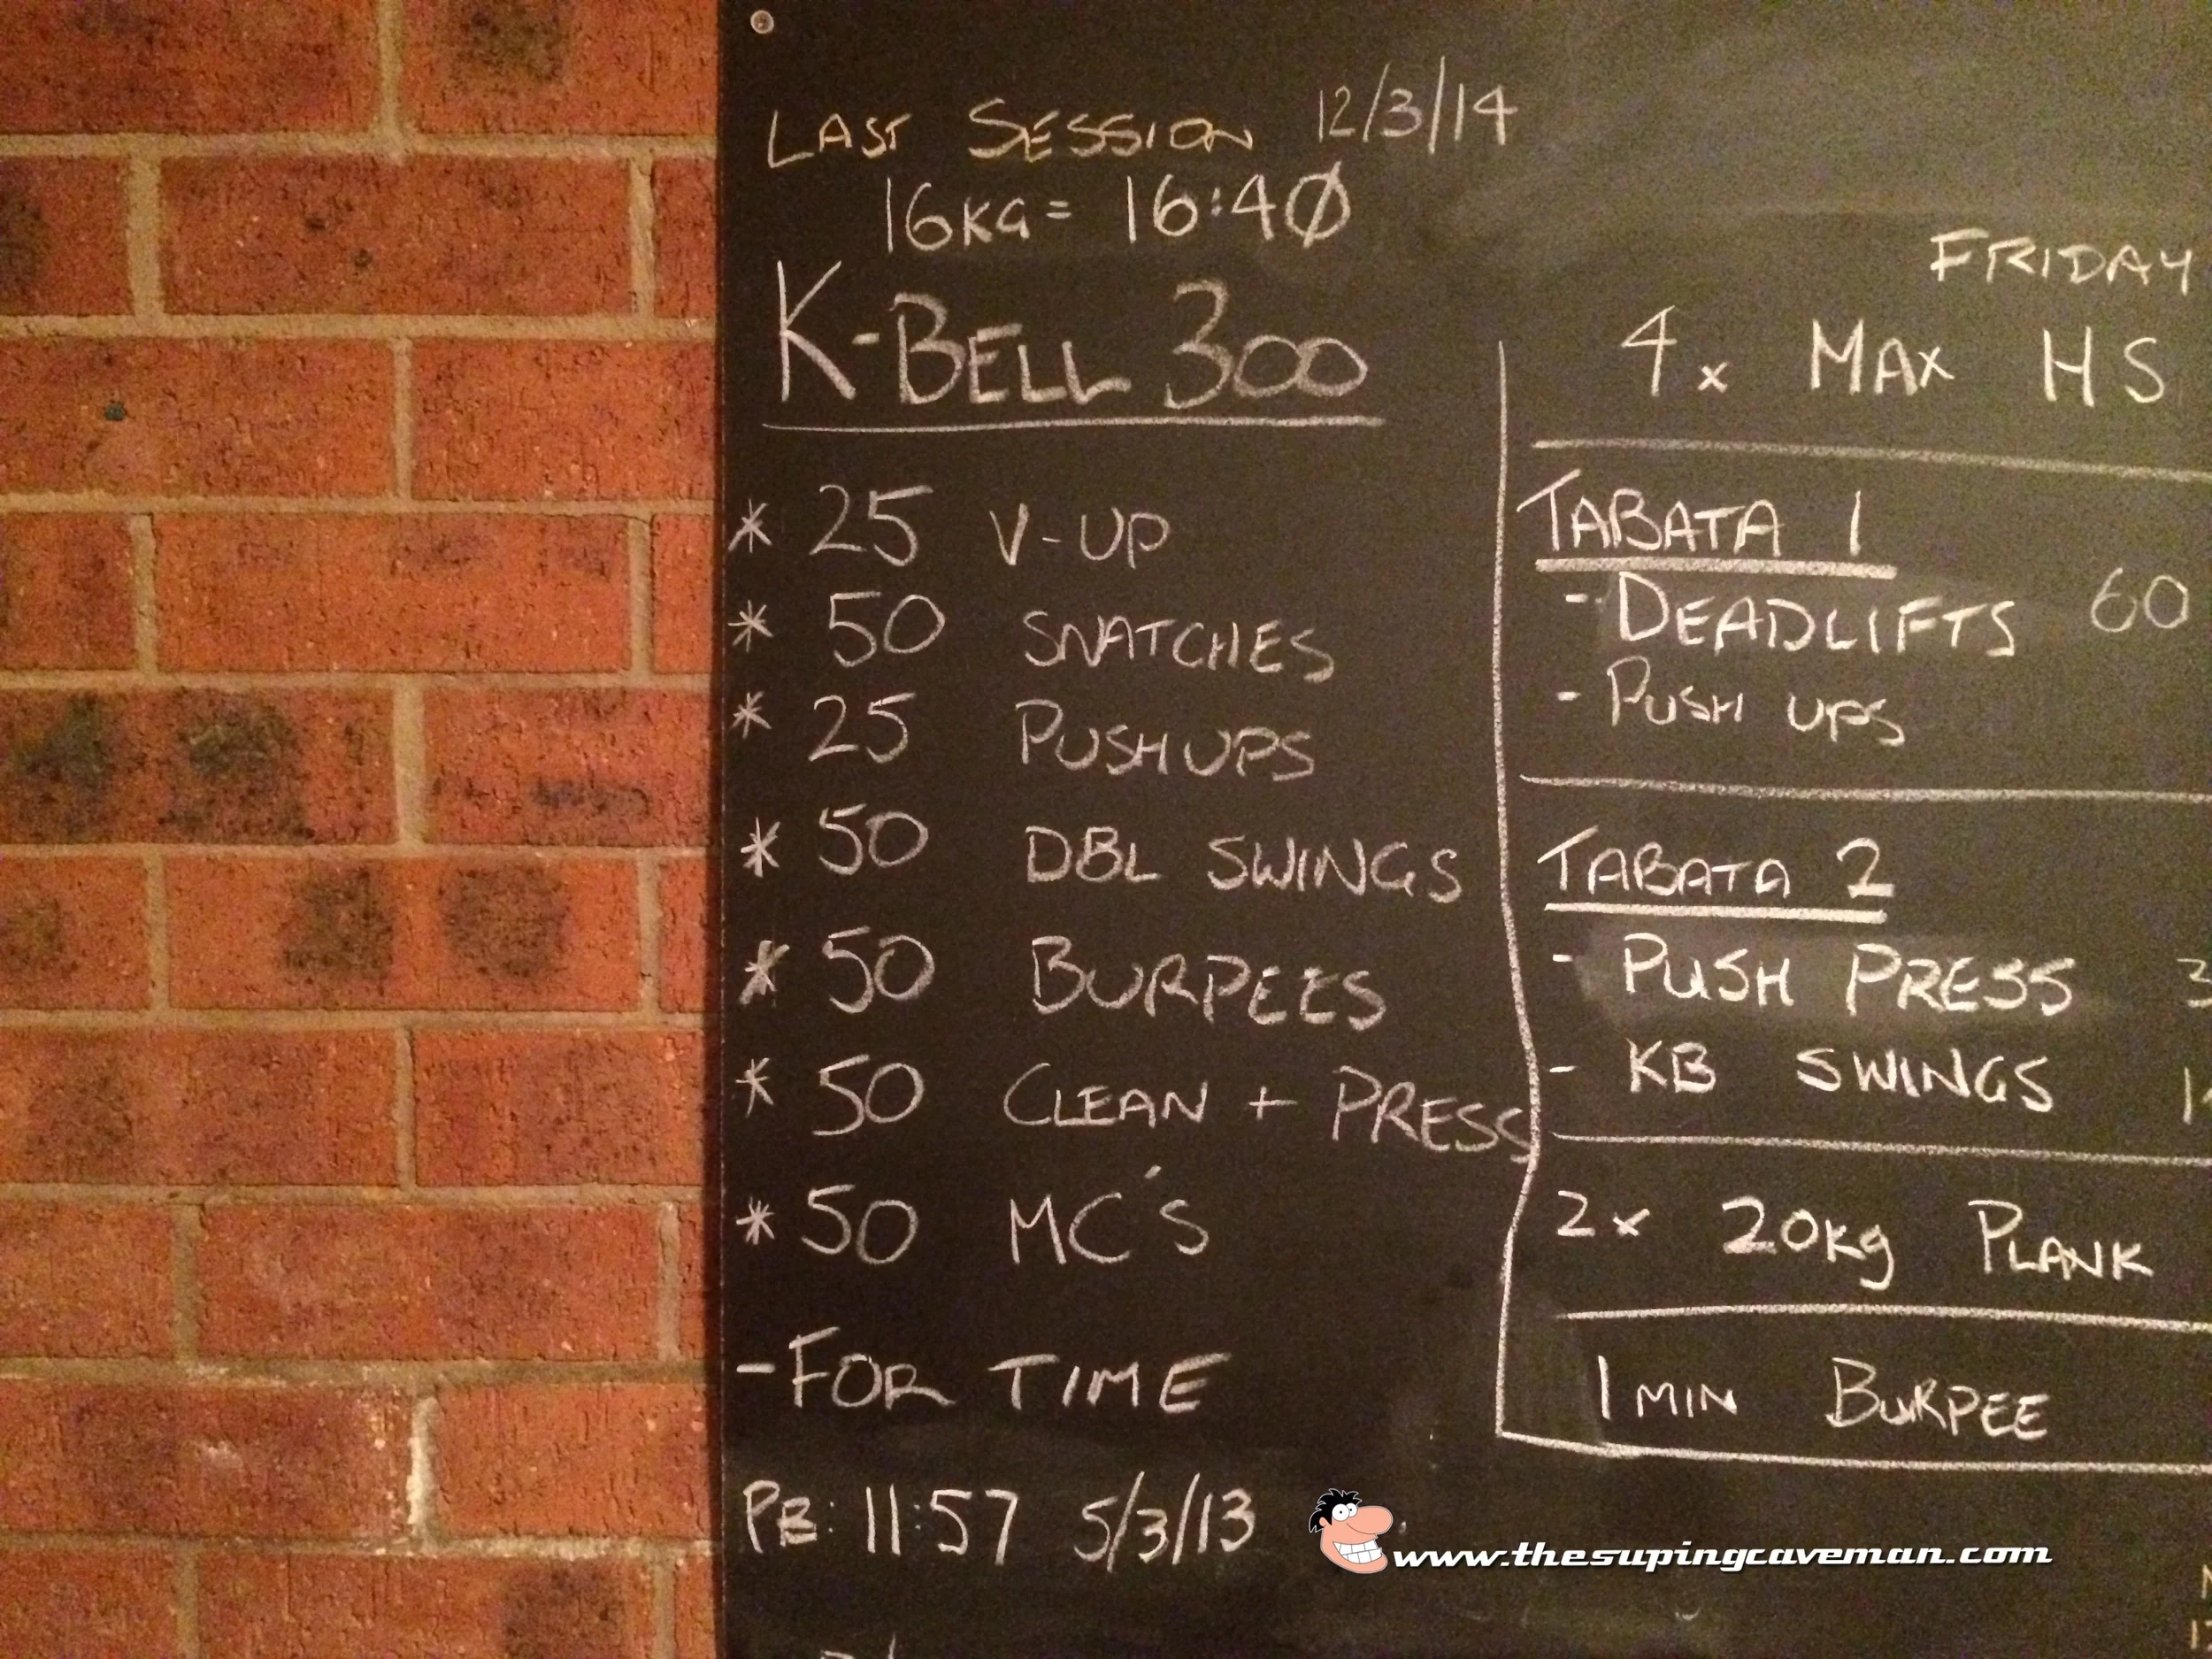 LAST SESSION 12/3/14
16KG = 16:40
K-BELL 300
* 25 V-UP
* 50 SNATCHES
* 25 PUSHUPS
* 50 DBL SWINGS
* 50 BURPEES
* 50 CLEAN + PRESS
* 50 MC'S
- FOR TIME
PB: 11:57 5/3/13
FRIDAY
4x MAX HS
TABATA 1
- DEADLIFTS 60
- PUSH UPS
TABATA 2
- PUSH PRESS 3
- KB SWINGS
2x 20kg PLANK
1 MIN BURPEE
www.thesupingcaveman.com